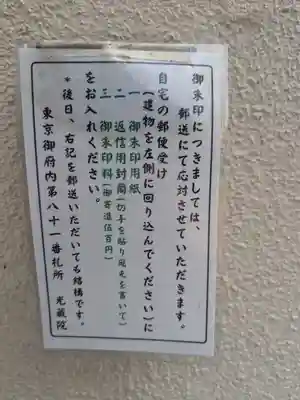 御朱印につきましては、
郵送にて応対させていただきます。
自宅の郵便受け
(建物を左側に回り込んでください)に
一 御朱印用紙
二 返信用封筒(切手を貼り宛先を書いて)
三 御朱印料(御寄進伍百円)
をお入れください。
*後日、右記を郵送いただいても結構です。
東京御府内第八十一番札所 光蔵院